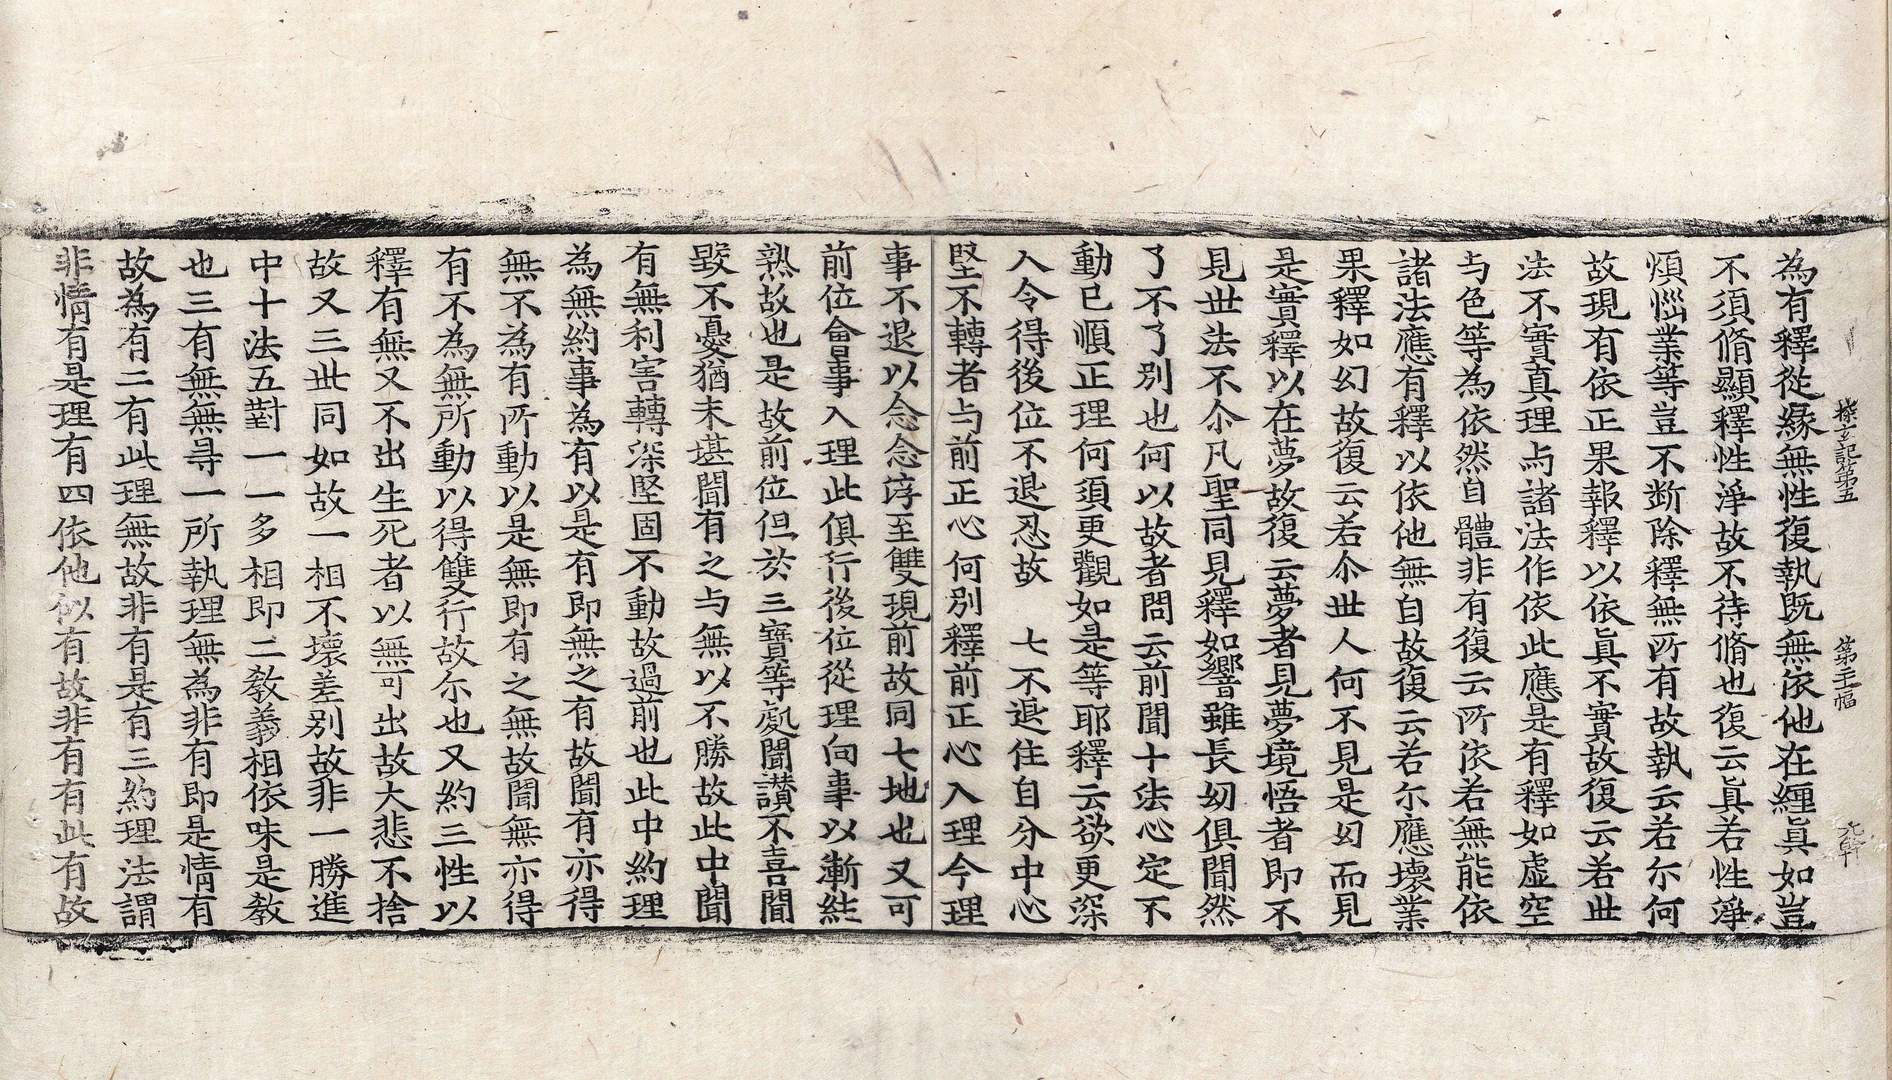 探玄記第五　第三十一幅　九軒
為有釋從緣無性復執既無依他在纏眞如豈
不須脩顯釋性淨故不待脩也復云眞若性淨
煩惱業等豈不断除釋無所有故執云若尒何
故現有依正果報釋以依眞不實故復云若世
法不實真理与諸法作依此應是有釋如虛空
与色等為依然自體非有復云所依若無能依
諸法應有釋以依他無自故復云若尒應壞業
果釋如幻故復云若尒世人何不見是幻而見
是實釋以在夢故復云夢者見夢境悟者即不
見世法不尒凡聖同見釋如響雖長幼俱聞然
了不了別也何以故者問云前聞十法心定不
動已順正理何須更觀如是等耶釋云欲更深
入令得後位不退忍故　七不退住自分中心
堅不轉者与前正心何別釋前正心入理今理
事不退以念念淳至雙現前故同七地也又可
前位會事入理此俱行後位從理向事以漸純
熟故也是故前位但於三寶等處聞讃不喜聞
毀不憂猶未堪聞有之与無以不勝故此中聞
有無利害轉深堅固不動故過前也此中約理
為無約事為有以是有即無之有故聞有亦得
無不為有所動以是無即有之無故聞無亦得
有不為無所動以得雙行故尒也又約三性以
釋有無又不出生死者以無可出故大悲不捨
故又三世同如故一相不壞差別故非一勝進
中十法五對一一多相即二教義相依味是教
也三有無無㝵一所執理無為非有即是情有
故為有二有此理無故非有是有三約理法謂
非情有是理有四依他似有故非有有此有故